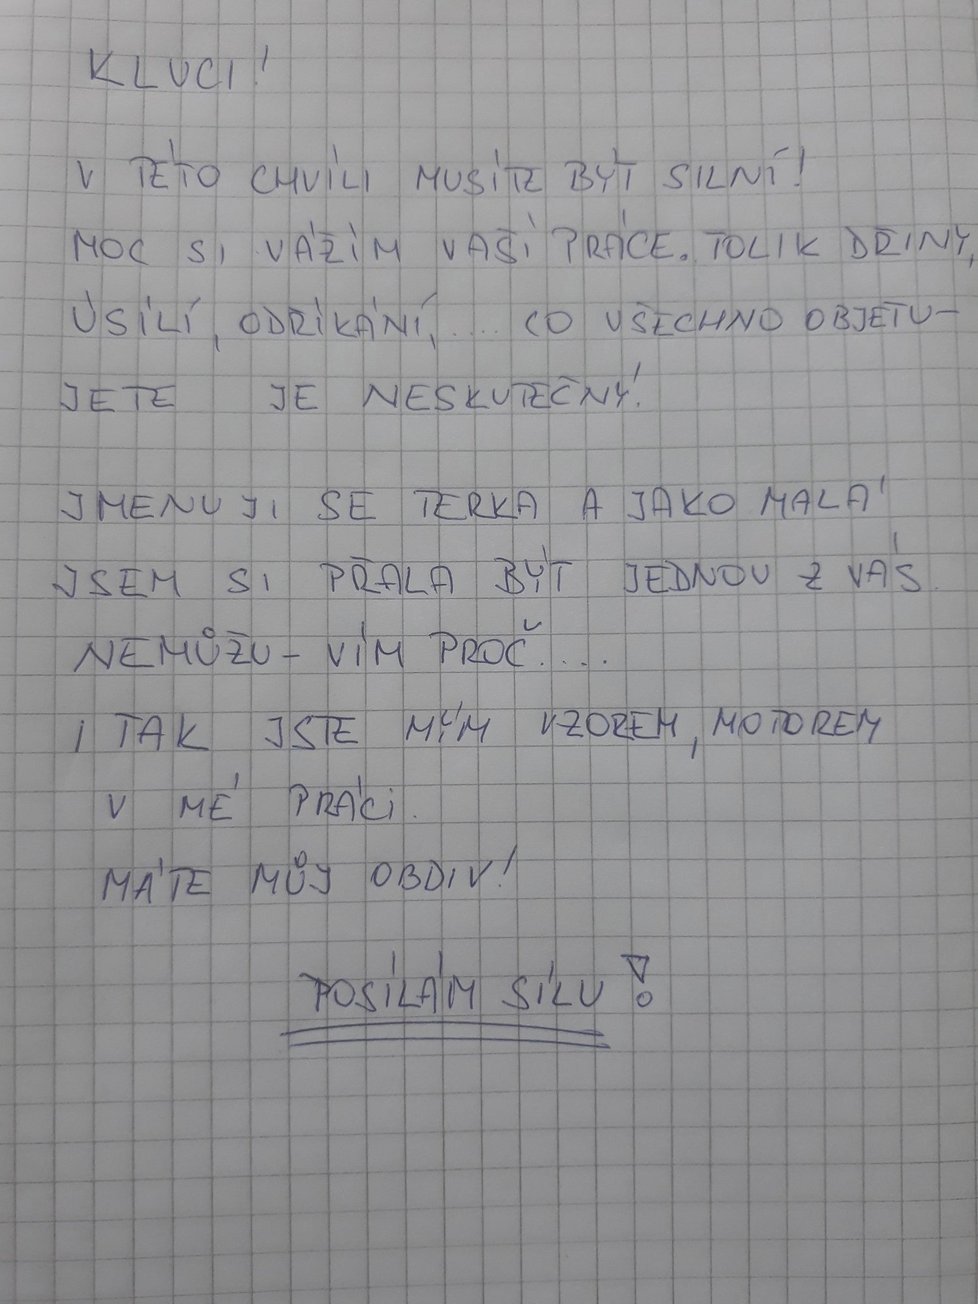 KLUCI!
V TÉTO CHVÍLI MUSÍTE BÝT SILNÍ!
MOC SI VÁŽÍM VAŠÍ PRÁCE. TOLIK DŘINY,
ÚSÍLÍ, ODŘÍKÁNÍ, .... CO VŠECHNO OBJETU-
JETE JE NESKUTEČNÝ!
JMENUJI SE TERKA A JAKO MALÁ
JSEM SI PŘÁLA BÝT JEDNOU Z VÁS.
NEMŮŽU - VÍM PROČ....
I TAK JSTE MÝM VZOREM, MOTOREM
V MÉ PRÁCI.
MÁTE MŮJ OBDIV!
POSÍLÁM SÍLU!